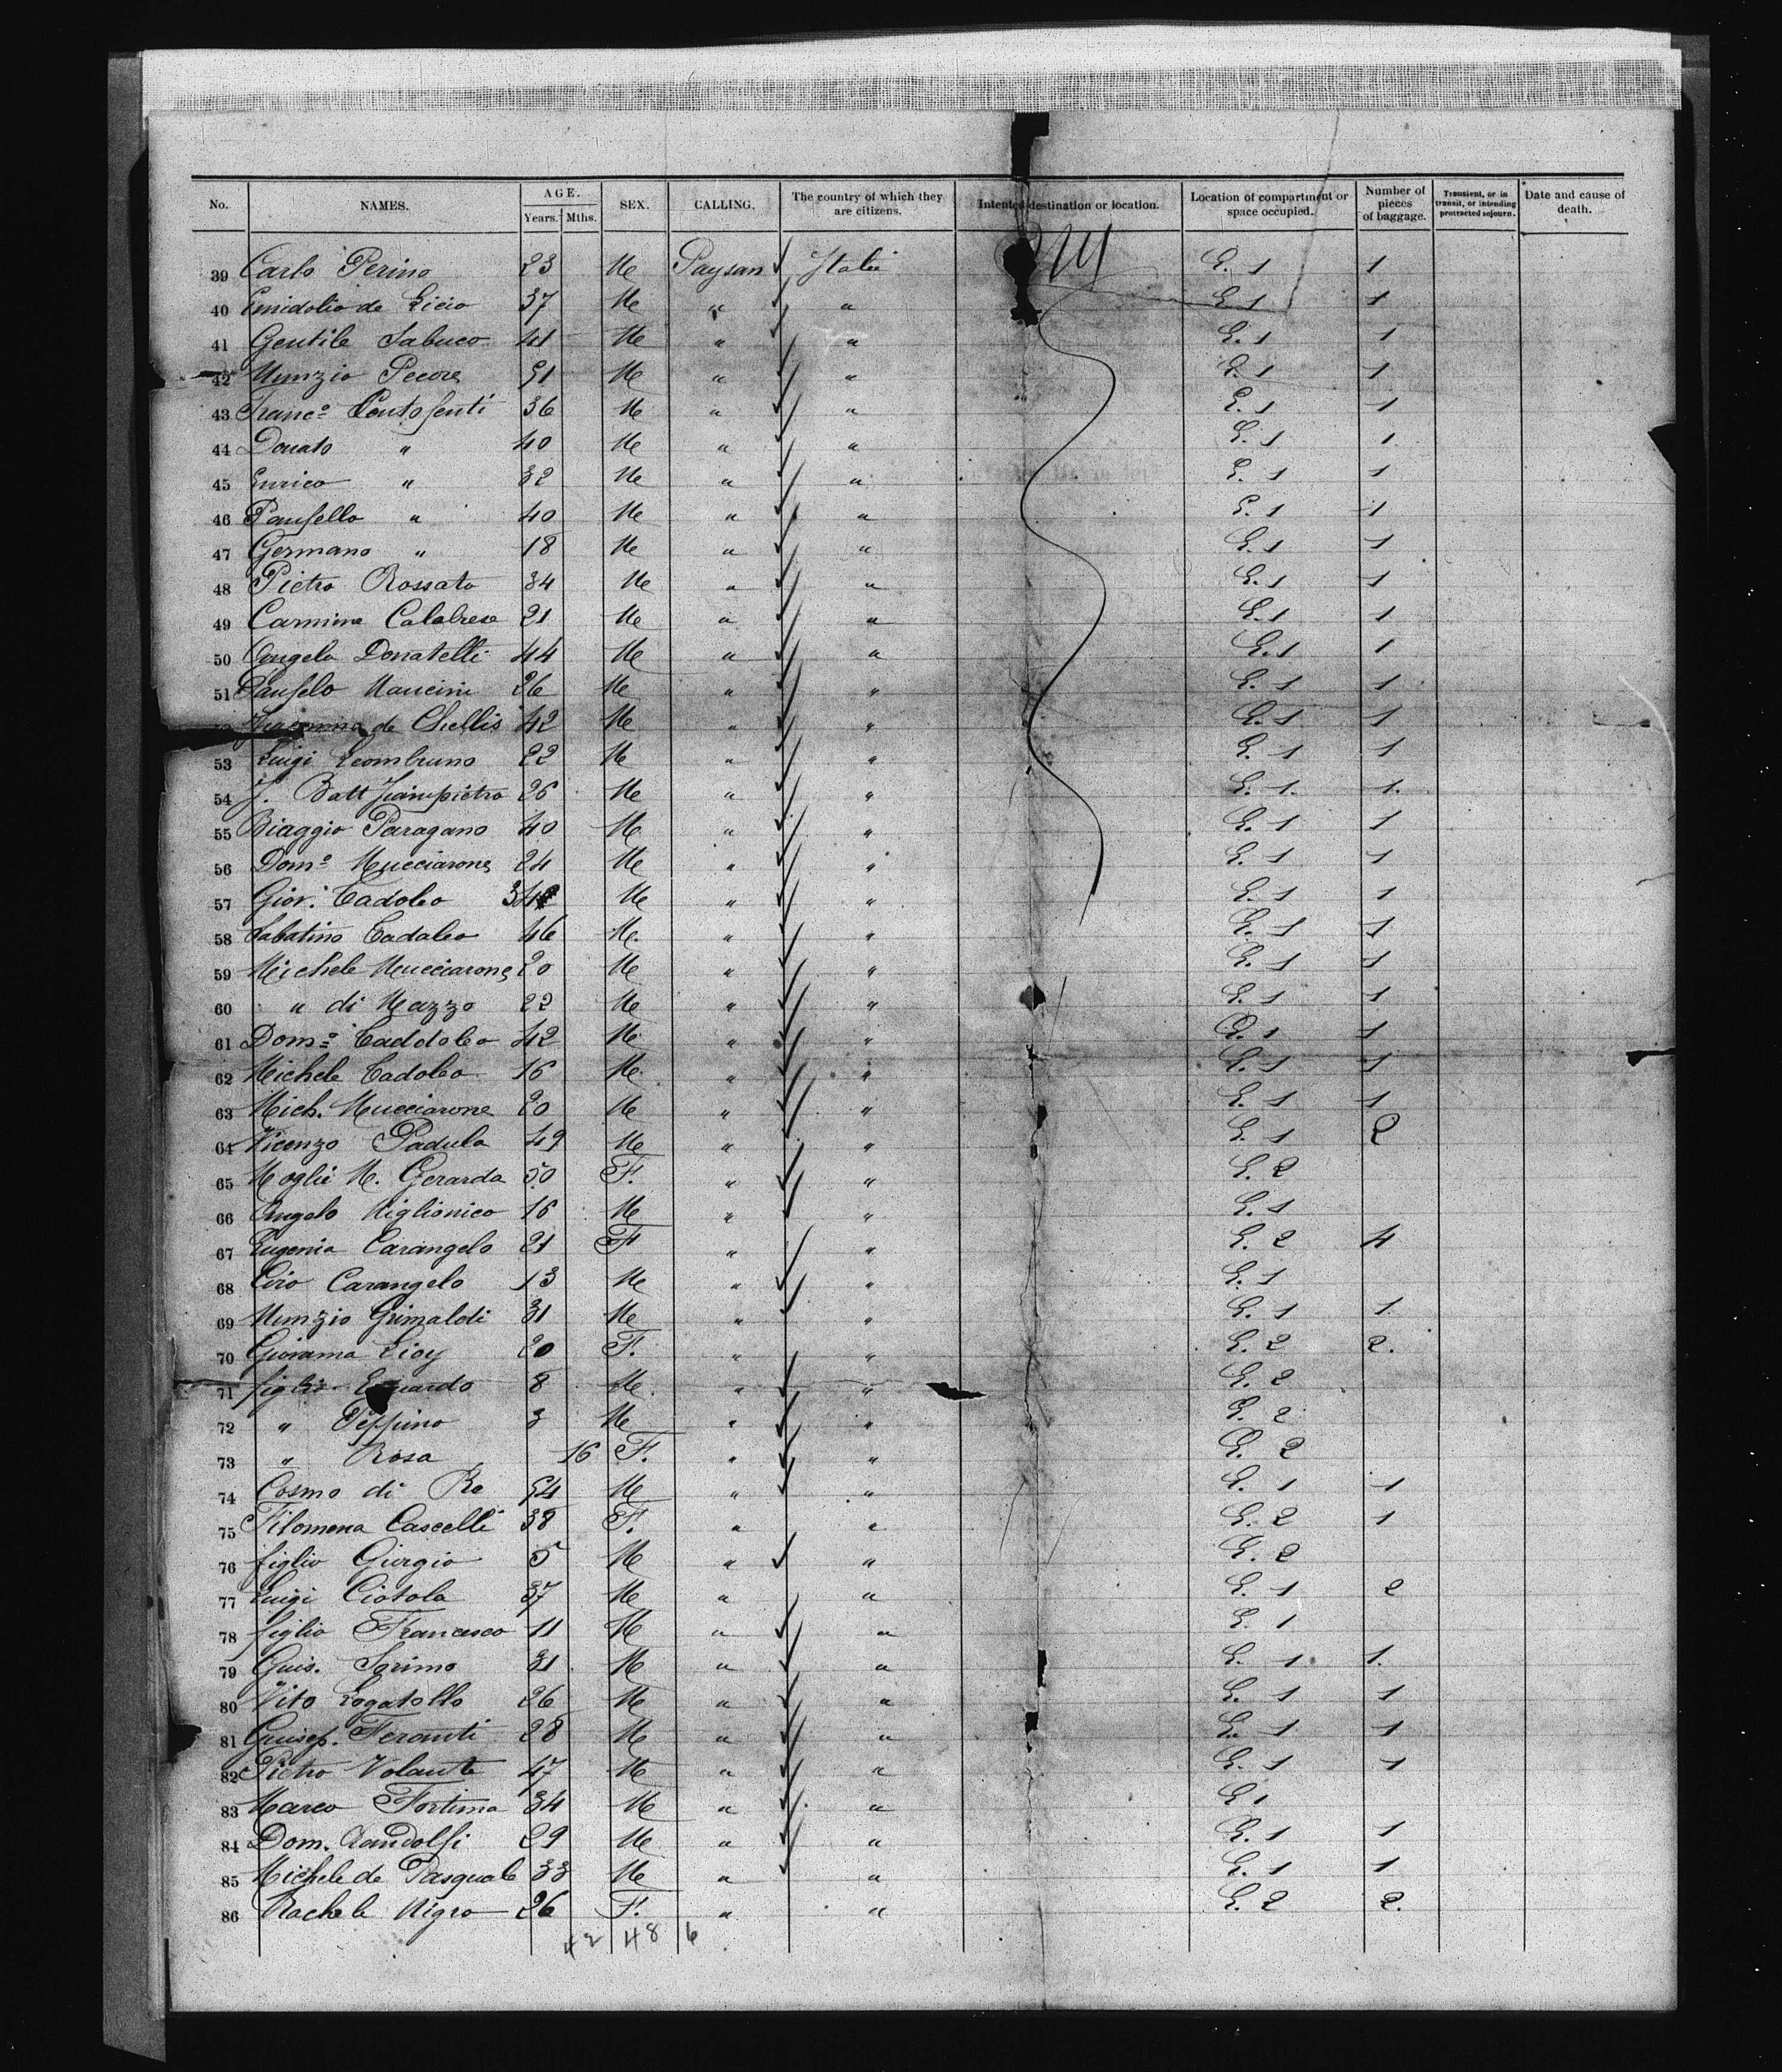 No. NAMES. AGE. Years. Mths. SEX. CALLING. The country of which they are citizens. Intented destination or location. Location of compartment or space occupied. Number of pieces of baggage. Transient, or in transit, or intending protracted sojourn. Date and cause of death.
39 Carlo Perino 23 M Paysan ✓ Italie NY E. 1 1
40 Emidolio de Licio 37 M " ✓ " E. 1 1
41 Gentile Sabuco 41 M " ✓ " E. 1 1
42 Nunzio Pecore 51 M " ✓ " E. 1 1
43 Franco Contofenti 36 M " ✓ " E. 1 1
44 Donato " 40 M " ✓ " E. 1 1
45 Enrico " 32 M " ✓ " E. 1 1
46 Panfello " 40 M " ✓ " E. 1 1
47 Germano " 18 M " ✓ " E. 1 1
48 Pietro Rossato 34 M " ✓ " E. 1 1
49 Carmine Calabrese 21 M " ✓ " E. 1 1
50 Angelo Donatelli 44 M " ✓ " E. 1 1
51 Panfelo Mancini 26 M " ✓ " E. 1 1
de Chellis 42 M " ✓ " E. 1 1
53 Luigi Leombruno 22 M " ✓ " E. 1 1
54 J. Batt Jiampietro 26 M " ✓ " E. 1. 1.
55 Biaggio Paragano 40 M " ✓ " E. 1 1
56 Domo Mucciarone 24 M " ✓ " E. 1 1
57 Giov. Tadoleo 34 M " ✓ " E. 1 1
58 Sabatino Tadaleo 46 M. " ✓ " E. 1 1
59 Michele Mucciarone 20 M " ✓ " E. 1 1
60 " di Mazzo 22 M " ✓ " E. 1 1
61 Domo Taddoleo 42 M " ✓ " E. 1 1
62 Michele Tadoleo 16 M. " ✓ " E. 1 1
63 Mich. Mucciarone 20 M " ✓ " E. 1 1
64 Vicenzo Padula 49 M " ✓ " E. 1 2
65 Moglie M. Gerarda 50 F. " ✓ " E. 2
66 Angelo Miglionico 16 M " ✓ " E. 1
67 Eugenia Carangelo 21 F " ✓ " E. 2 4
68 Ciro Carangelo 13 M " ✓ " E. 1
69 Nunzio Grimaldi 31 M " ✓ " E. 1 1
70 Giovanna Lioy 20 F. " " E. 2 2.
71 figlio 8 M. " ✓ " E. 2
72 " Peppino 3 M " ✓ " E. 2
73 " Rosa 16 F. " ✓ " E. 2
74 Cosmo di Re 54 M " ✓ " E. 1 1
75 Filomena Cascelli 38 F. " " E. 2 1
76 figlio Giorgio 5 M " ✓ " E. 2
77 Luigi Ciotola 37 M " " E. 1 2
78 figlio Francesco 11 M " ✓ " E. 1
79 Guis. Sorimo 31 M " ✓ " E. 1 1.
80 Vito Logatollo 26 M " ✓ " E. 1 1
81 Guisep. Feranti 28 M " ✓ " E. 1 1
82 Pietro Volante 47 M " ✓ " E. 1 1
83 Marco Fortima 34 M " ✓ " E 1
84 Dom. Randolfi 29 M " ✓ " E. 1 1
85 Michele de Pasquale 33 M " ✓ " E. 1 1
86 Rachele Nigro 26 F. " " E. 2 2.
42 48 6